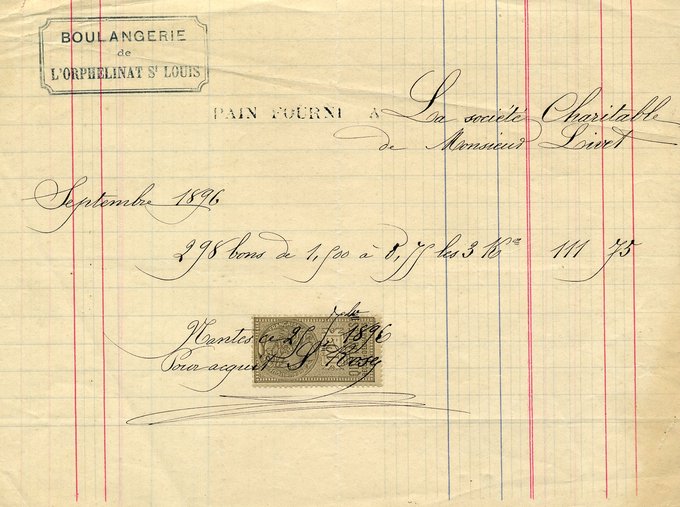 BOULANGERIE
de
L'ORPHELINAT St LOUIS
PAIN FOURNI A La société Charitable
de Monsieur Livet
Septembre 1896
298 bons de 1,500 à 0,75 les 3 Kos 111 75
Nantes ce 25 7bre 1896
Pour acquit